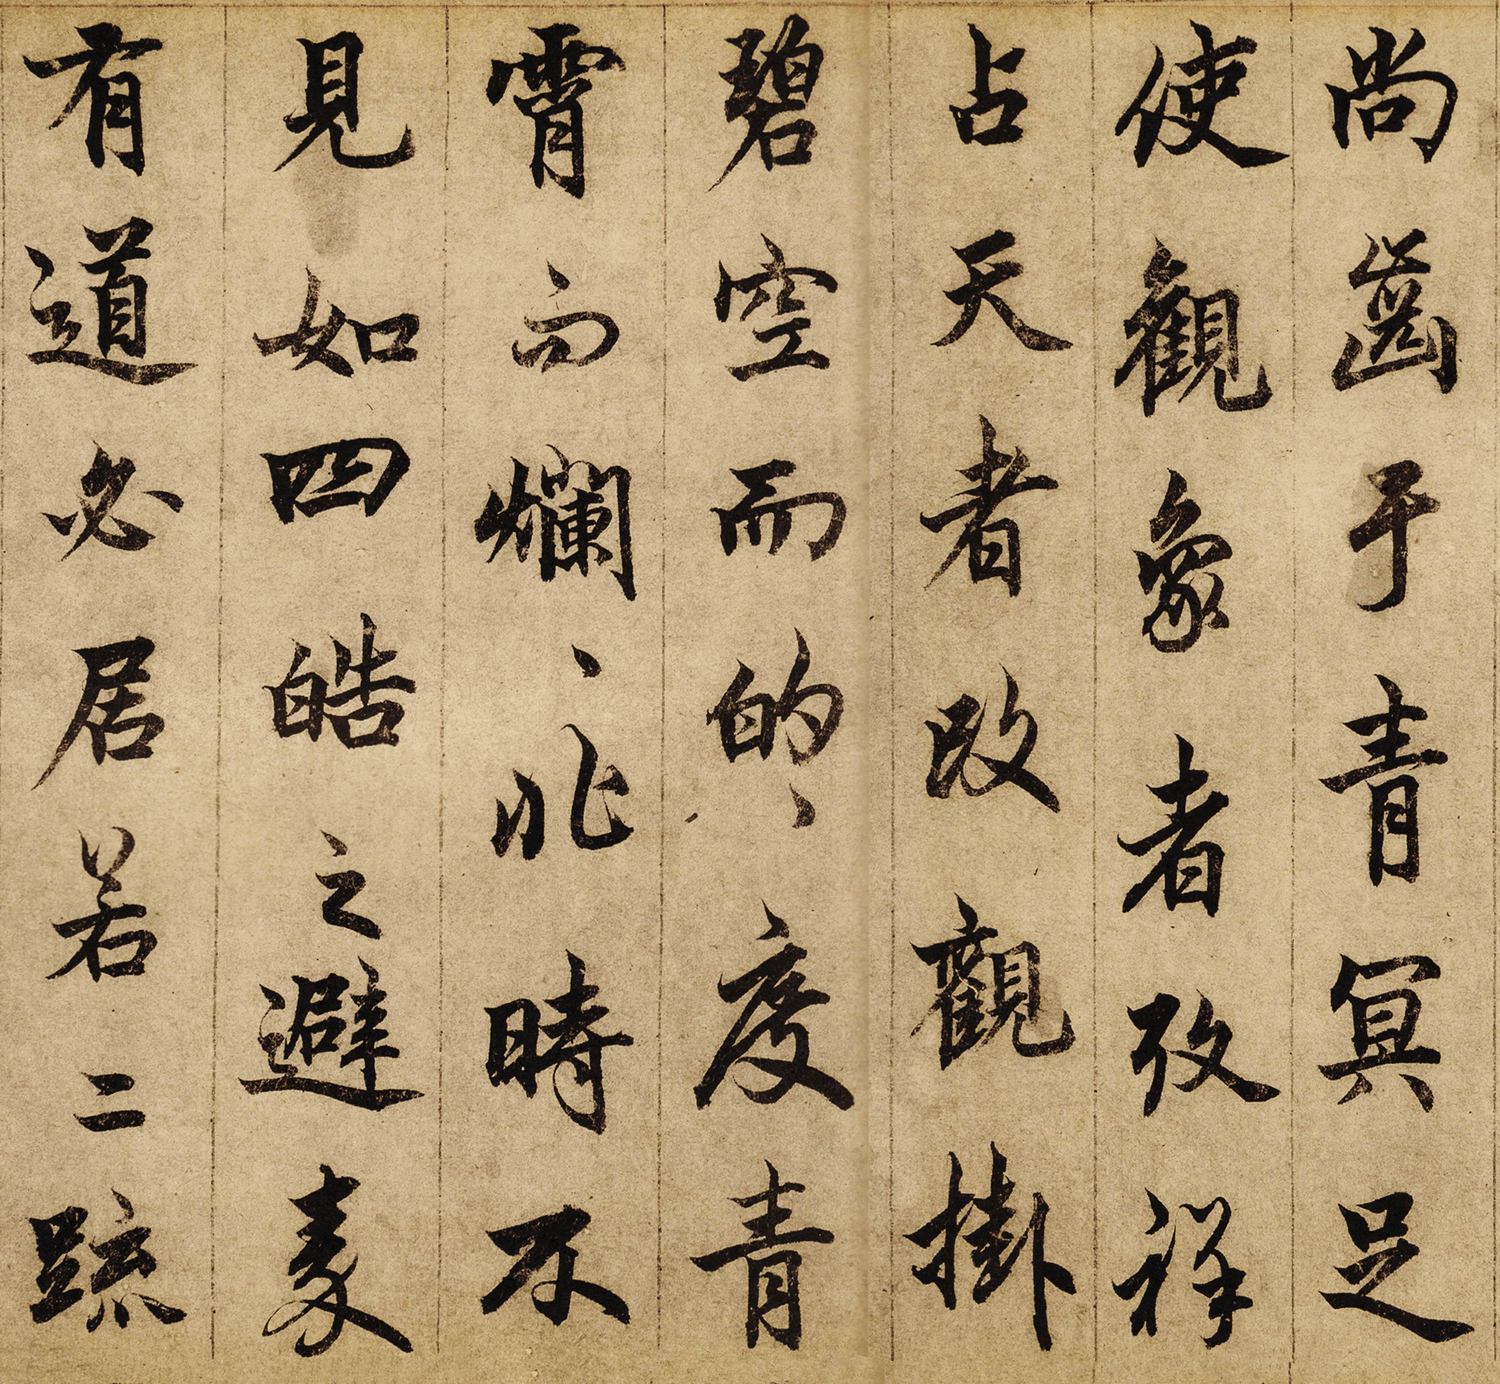 尚齒于青冥足
使觀象者攷祥
占天者改觀掛
碧空而的丶度青
霄而爛丶非時不
見如四皓之避秦
有道必居若二疏